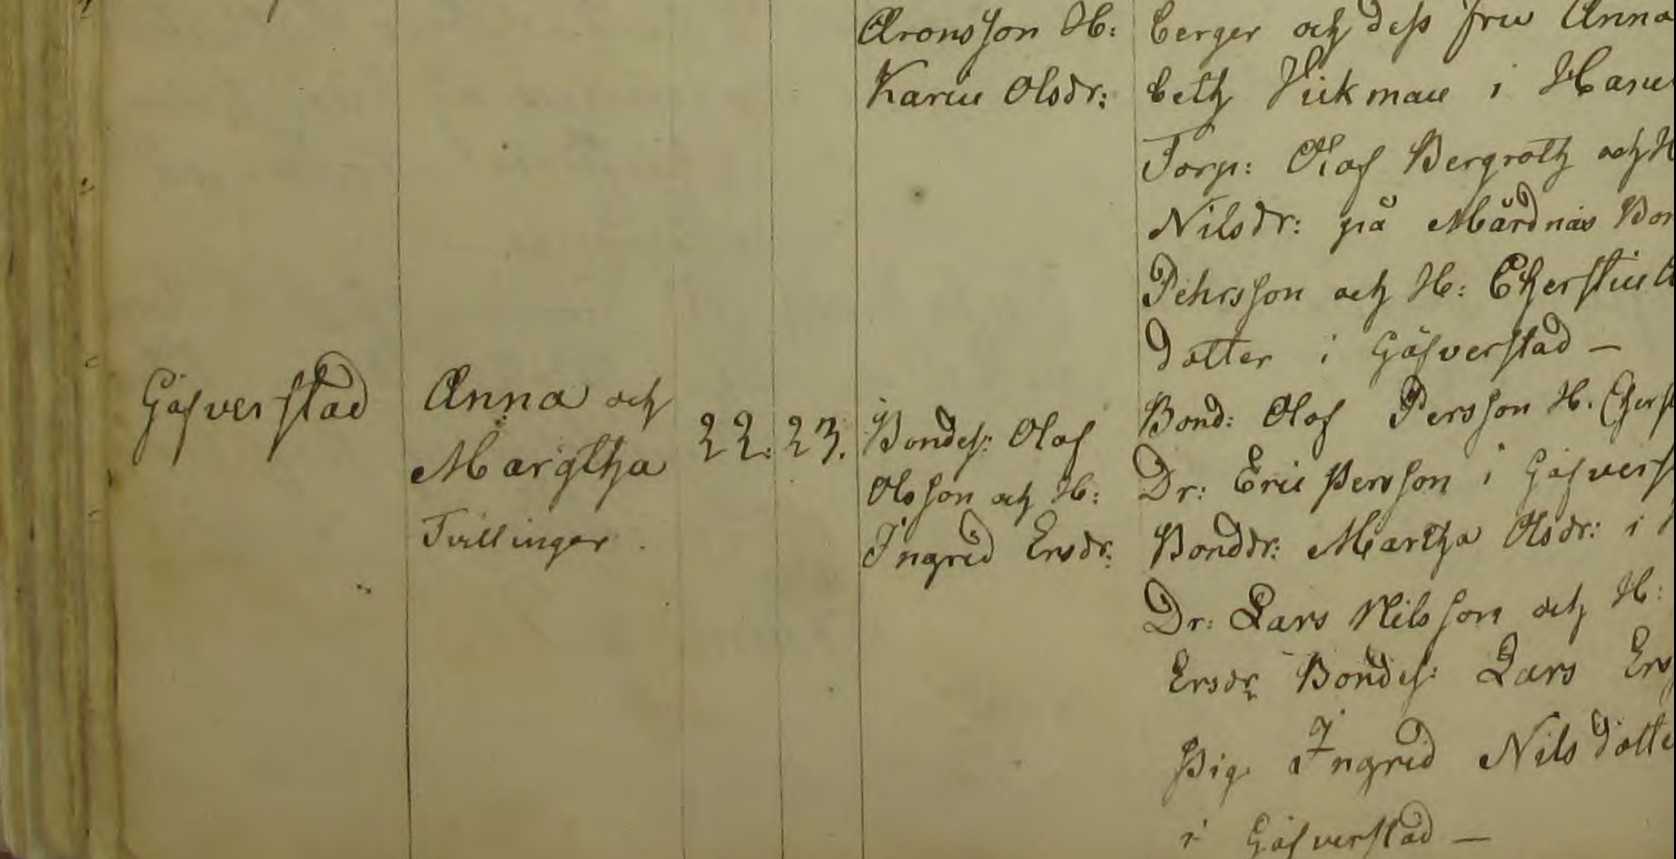 Aronsson H:
Karin Olsdr:
berger och dess fru Anna
beth Hickman i Hasse
Torp: Olof Bergroth och H
Nilsdr: på Mårdnäs Bon
Pehrsson och H: Cherstin
dotter i Gäfverstad –
Gäfverstad
Anna och
Margtha
Tvillingar
22. 23.
Bondes: Olof
Olsson och H:
Ingrid Ersdr:
Bond: Olof Persson H. Cherst
Dr: Eric Persson i Gäfverst
Bonddr: Martha Olsdr: i
Dr: Lars Nilsson och H:
Ersdr Bondes: Lars Ers
Pig. Ingrid Nilsdotte
i Gäfverstad –